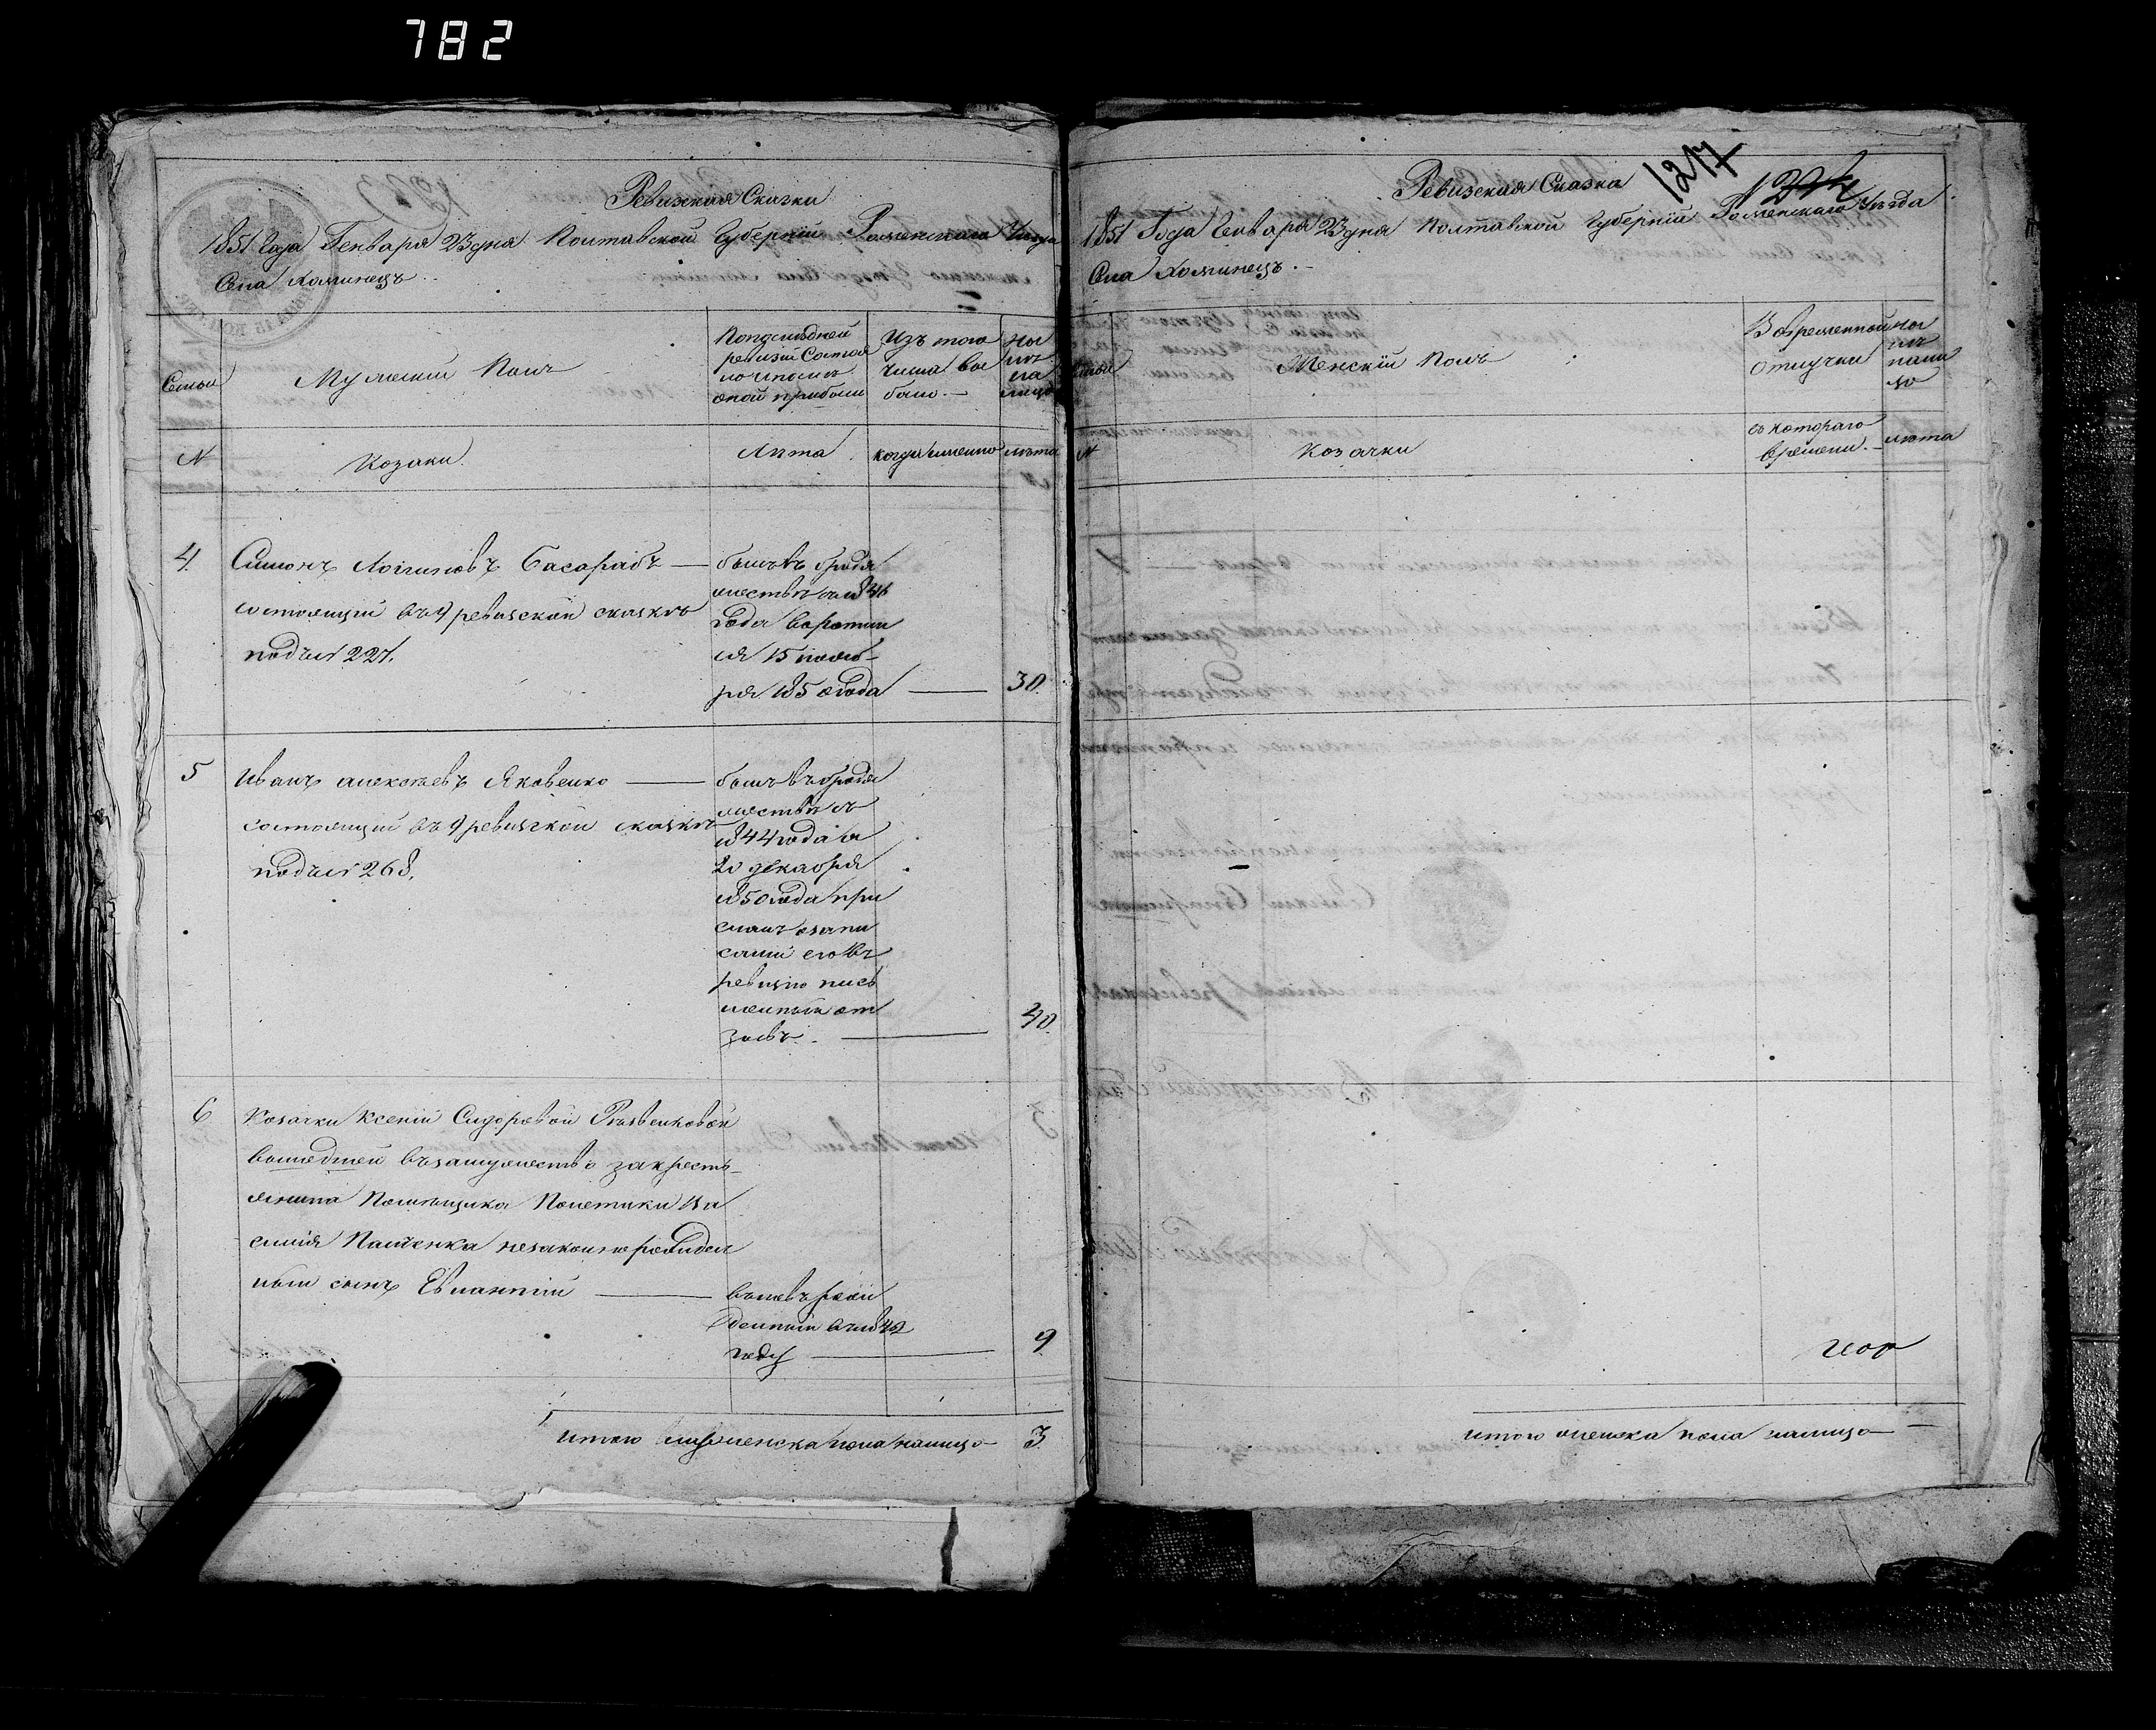 782
Ревизская Сказка
1851 Года Генваря 23 дня Полтавской Губернии Роменскаго Уезда
Села Хоминецъ.
Семьи
Мужеский Полъ
По последней
ревизии состоя
ло и после
оной прибыло
Изъ того
числа вы
было.
Ны
не
на
лицо
N
Козаки.
Лета
когда именно
лета
4.
Симонъ Логиновъ Басарабъ
состоящий въ 9 ревизской сказке
подъ № 227.
былъ въ бродя
жестве съ 1846
года воротил
ся 15 нояб-
ря 1850 года
30.
5
Иванъ Алексеевъ Яковенко
состоящий въ 9 ревизской сказке
подъ № 268.
былъ въ бродя
жестве съ
1844 года а
20 декабря
1850 года при
сланъ
его въ
ревизию пись
менный от
зывъ.
40.
6
Козачки Ксении Сидоровой
вышедшей въ замужество за кресть-
янина Помещика Полетики Ва
силия Пащенка незаконно рожден
ный сынъ Евлампий
вновь рож
денный въ 1842
году
9
Итого мужеска пола налицо
3.
1217
N
Ревизская Сказка
1851 Года Генваря 23 дня Полтавской Губернии Роменскаго Уезда
Села Хоминецъ.
Семьи
Женский Полъ
Во временной
отлучке
Ны
не
нали
цо
N
Козачки
съ котораго
времени.
лета
Итого женска пола налицо —